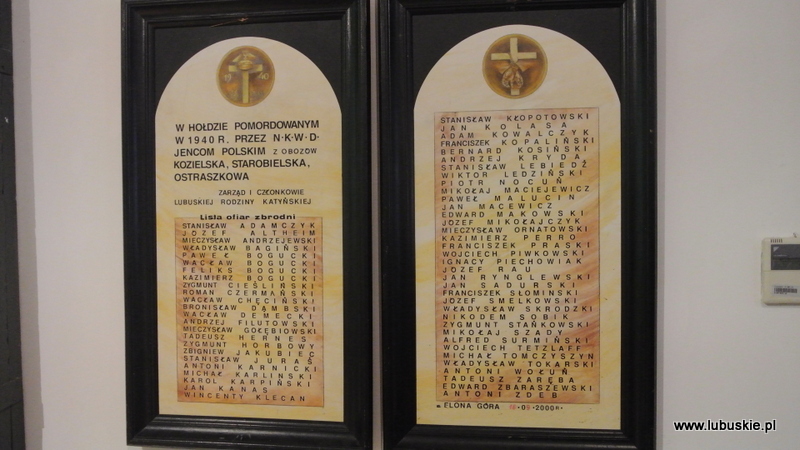 19 40
W HOŁDZIE POMORDOWANYM
W 1940 R. PRZEZ N·K·W·D·
JENCOM POLSKIM Z OBOZÓW
KOZIELSKA, STAROBIELSKA,
OSTRASZKOWA
ZARZĄD I CZŁONKOWIE
LUBUSKIEJ RODZINY KATYŃSKIEJ
Lista ofiar zbrodni
STANISŁAW ADAMCZYK
JÓZEF ALTHEIM
MIECZYSŁAW ANDRZEJEWSKI
WŁADYSŁAW BAGIŃSKI
PAWEŁ BOGUCKI
WACŁAW BOGUCKI
FELIKS BOGUCKI
KAZIMIERZ BOGUCKI
ZYGMUNT CIEŚLIŃSKI
ROMAN CZERMAŃSKI
WACŁAW CHĘCIŃSKI
BRONISŁAW DĄMBSKI
WACŁAW DEMECKI
ANDRZEJ FILUTOWSKI
MIECZYSŁAW GOŁĘBIOWSKI
TADEUSZ HERNES
ZYGMUNT HORBOWY
ZBIGNIEW JAKUBIEC
STANISŁAW JURAS
ANTONI KARNICKI
MICHAŁ KARLIŃSKI
KAROL KARPIŃSKI
JAN KANAS
WINCENTY KLECAN
STANISŁAW KŁOPOTOWSKI
JAN KOLASA
ADAM KOWALCZYK
FRANCISZEK KOPALIŃSKI
BERNARD KOSIŃSKI
ANDRZEJ KRYDA
STANISŁAW LEBIEDŹ
WIKTOR LEDZIŃSKI
PIOTR NOCUŃ
MIKOŁAJ MACIEJEWICZ
PAWEŁ MALUCIN
JAN MACEWICZ
EDWARD MAKOWSKI
JÓZEF MIKOŁAJCZYK
MIECZYSŁAW ORNATOWSKI
KAZIMIERZ PERRO
FRANCISZEK PRASKI
WOJCIECH PIWKOWSKI
IGNACY PIECHOWIAK
JÓZEF RAU
JAN RYNGLEWSKI
JAN SADURSKI
FRANCISZEK SŁOMIŃSKI
JÓZEF SMELKOWSKI
WŁADYSŁAW SKRODZKI
NIKODEM SOBIK
ZYGMUNT STAŃKOWSKI
MIKOŁAJ SZADY
ALFRED SURMIŃSKI
WOJCIECH TETZLAFF
MICHAŁ TOMCZYSZYN
WŁADYSŁAW TOKARSKI
ANTONI WOŁUŃ
TADEUSZ ZARĘBA
EDWARD ZBARASZEWSKI
ANTONI ZDEB
ELONA GÓRA 09 2000 R.
www.lubuskie.pl